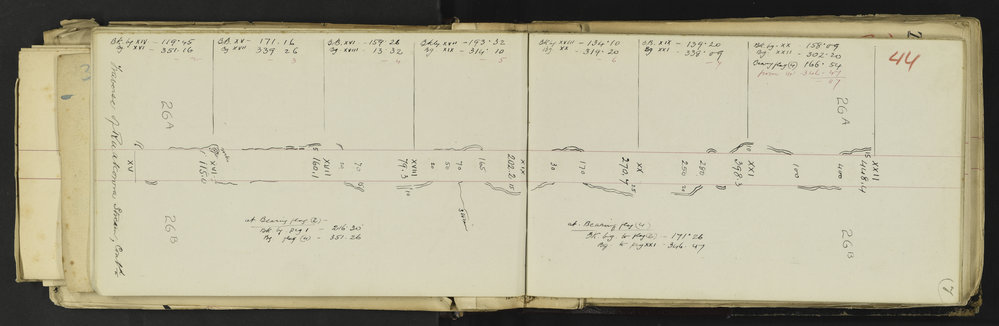 Bk. bg XIV - 119.45
Bg XVI - 351.16
- 2
B.B. XV - 171.16
Bg XVII 339.26
- 3
B.B. XVI - 159.26
Bg XVIII - 13.32
- 4
Bk bg XVII - 193.32
Bg XIX - 314.10
- 5
Bk bg XVIII - 134.10
Bg XX - 319.20
- 6
B.B. XIX - 139.20
Bg XXI - 338.09
Bk bg XX - 158.09
Bg XXII - 302.20
Bearing flag (4) 166.54
from (2) 346.47
07
44
Traverse of
Stream, Contd.
26A
26A
XV
XVI
115.0
15
XVII
160.1
20
70
XVIII
79.3
10
20
50
70
165
XIX
202.2
15
30
170
XX
270.7
25
250
20
280
XXI
398.3
10
100
400
15
XXII
448.4
26B
26B
at Bearing flag (2) -
Bk bg peg 1 - 216.30
Bg flag (4) - 351.26
at Bearing flag (4)
Bk. bg to flag (2) - 171.26
Bg to peg XXI - 346.47
(7)